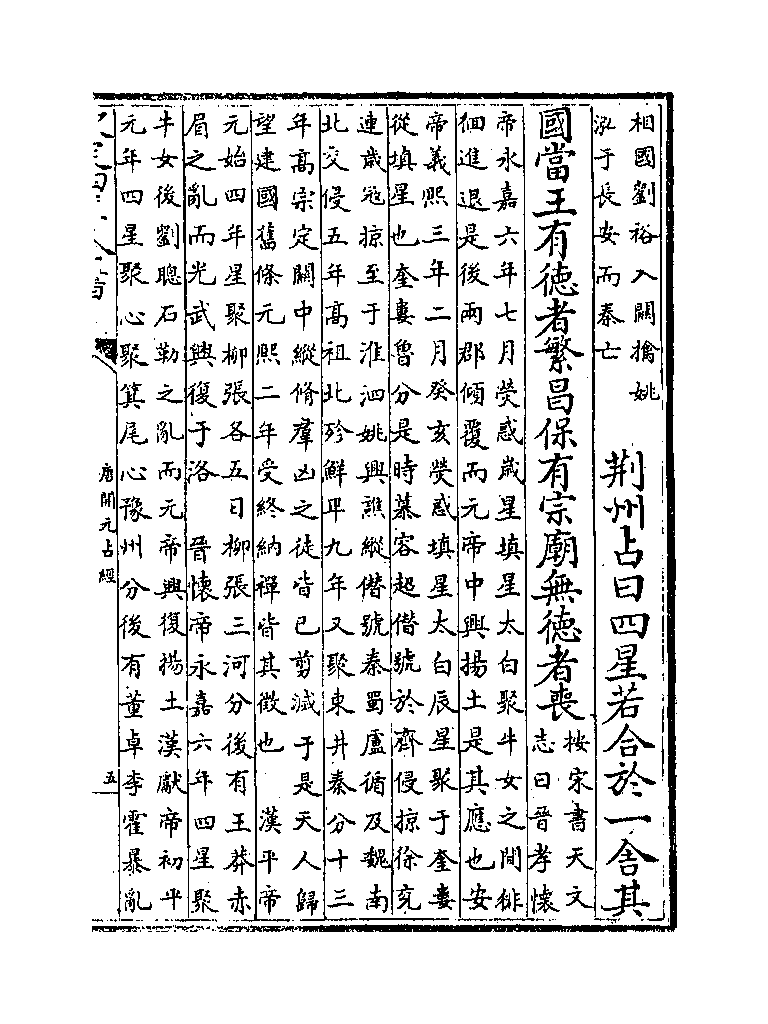 相國劉裕入關擒姚
泓于長安而秦亡
荆州占曰四星若合於一舍其
國當王有德者繁昌保有宗廟無德者喪
按宋書天文
志曰晉孝懷
帝永嘉六年七月熒惑歲星填星太白聚牛女之間徘
徊進退是後兩郡傾覆而元帝中興揚土是其應也安
帝義熙三年二月癸亥熒惑填星太白辰星聚于奎婁
從填星也奎婁魯分是時慕容超僣號於齊侵掠徐兖
連歲宼掠至于淮泗姚興譙縱僣號秦蜀盧循及魏南
北交侵五年髙祖北殄鮮卑九年又聚東井秦分十三
年髙宗定關中縱脩羣凶之徒皆已剪滅于是天人歸
望建國舊條元熙二年受終納禪皆其徵也　漢平帝
元始四年星聚柳張各五日柳張三河分後有王莽赤
眉之亂而光武興復于洛　晉懷帝永嘉六年四星聚
牛女後劉聰石勒之亂而元帝興復揚土漢獻帝初平
元年四星聚心聚箕尾心豫州分後有董卓李霍暴亂
唐開元占經
五